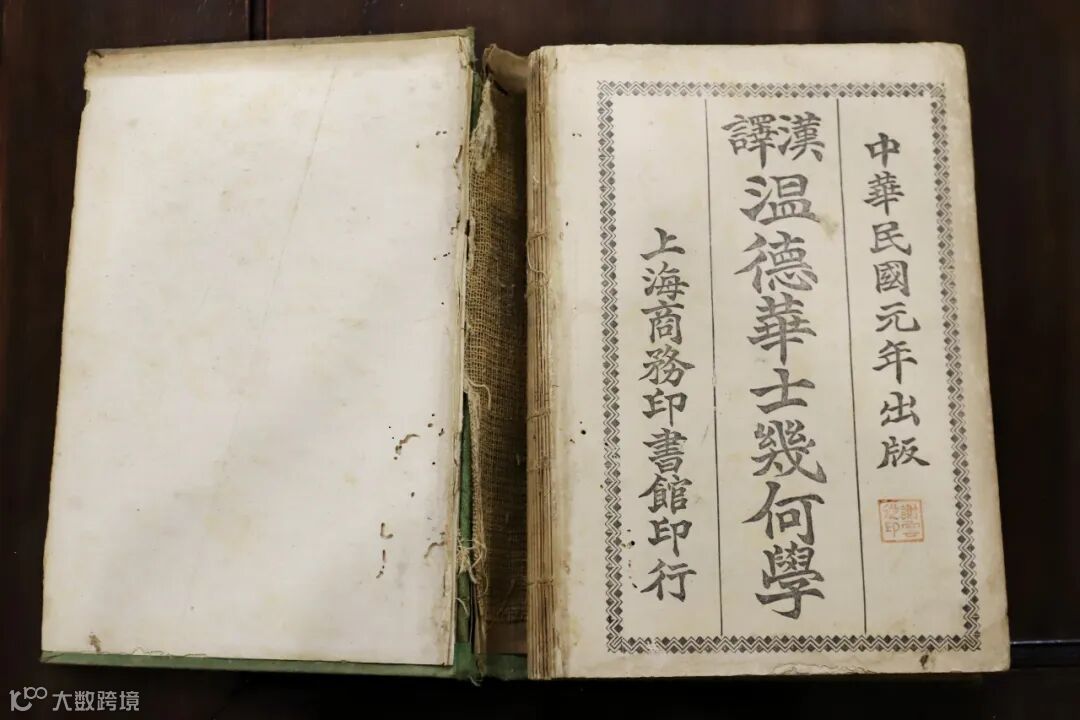 中華民國元年出版
漢譯
温德華士幾何學
上海商務印書館印行
大数跨境